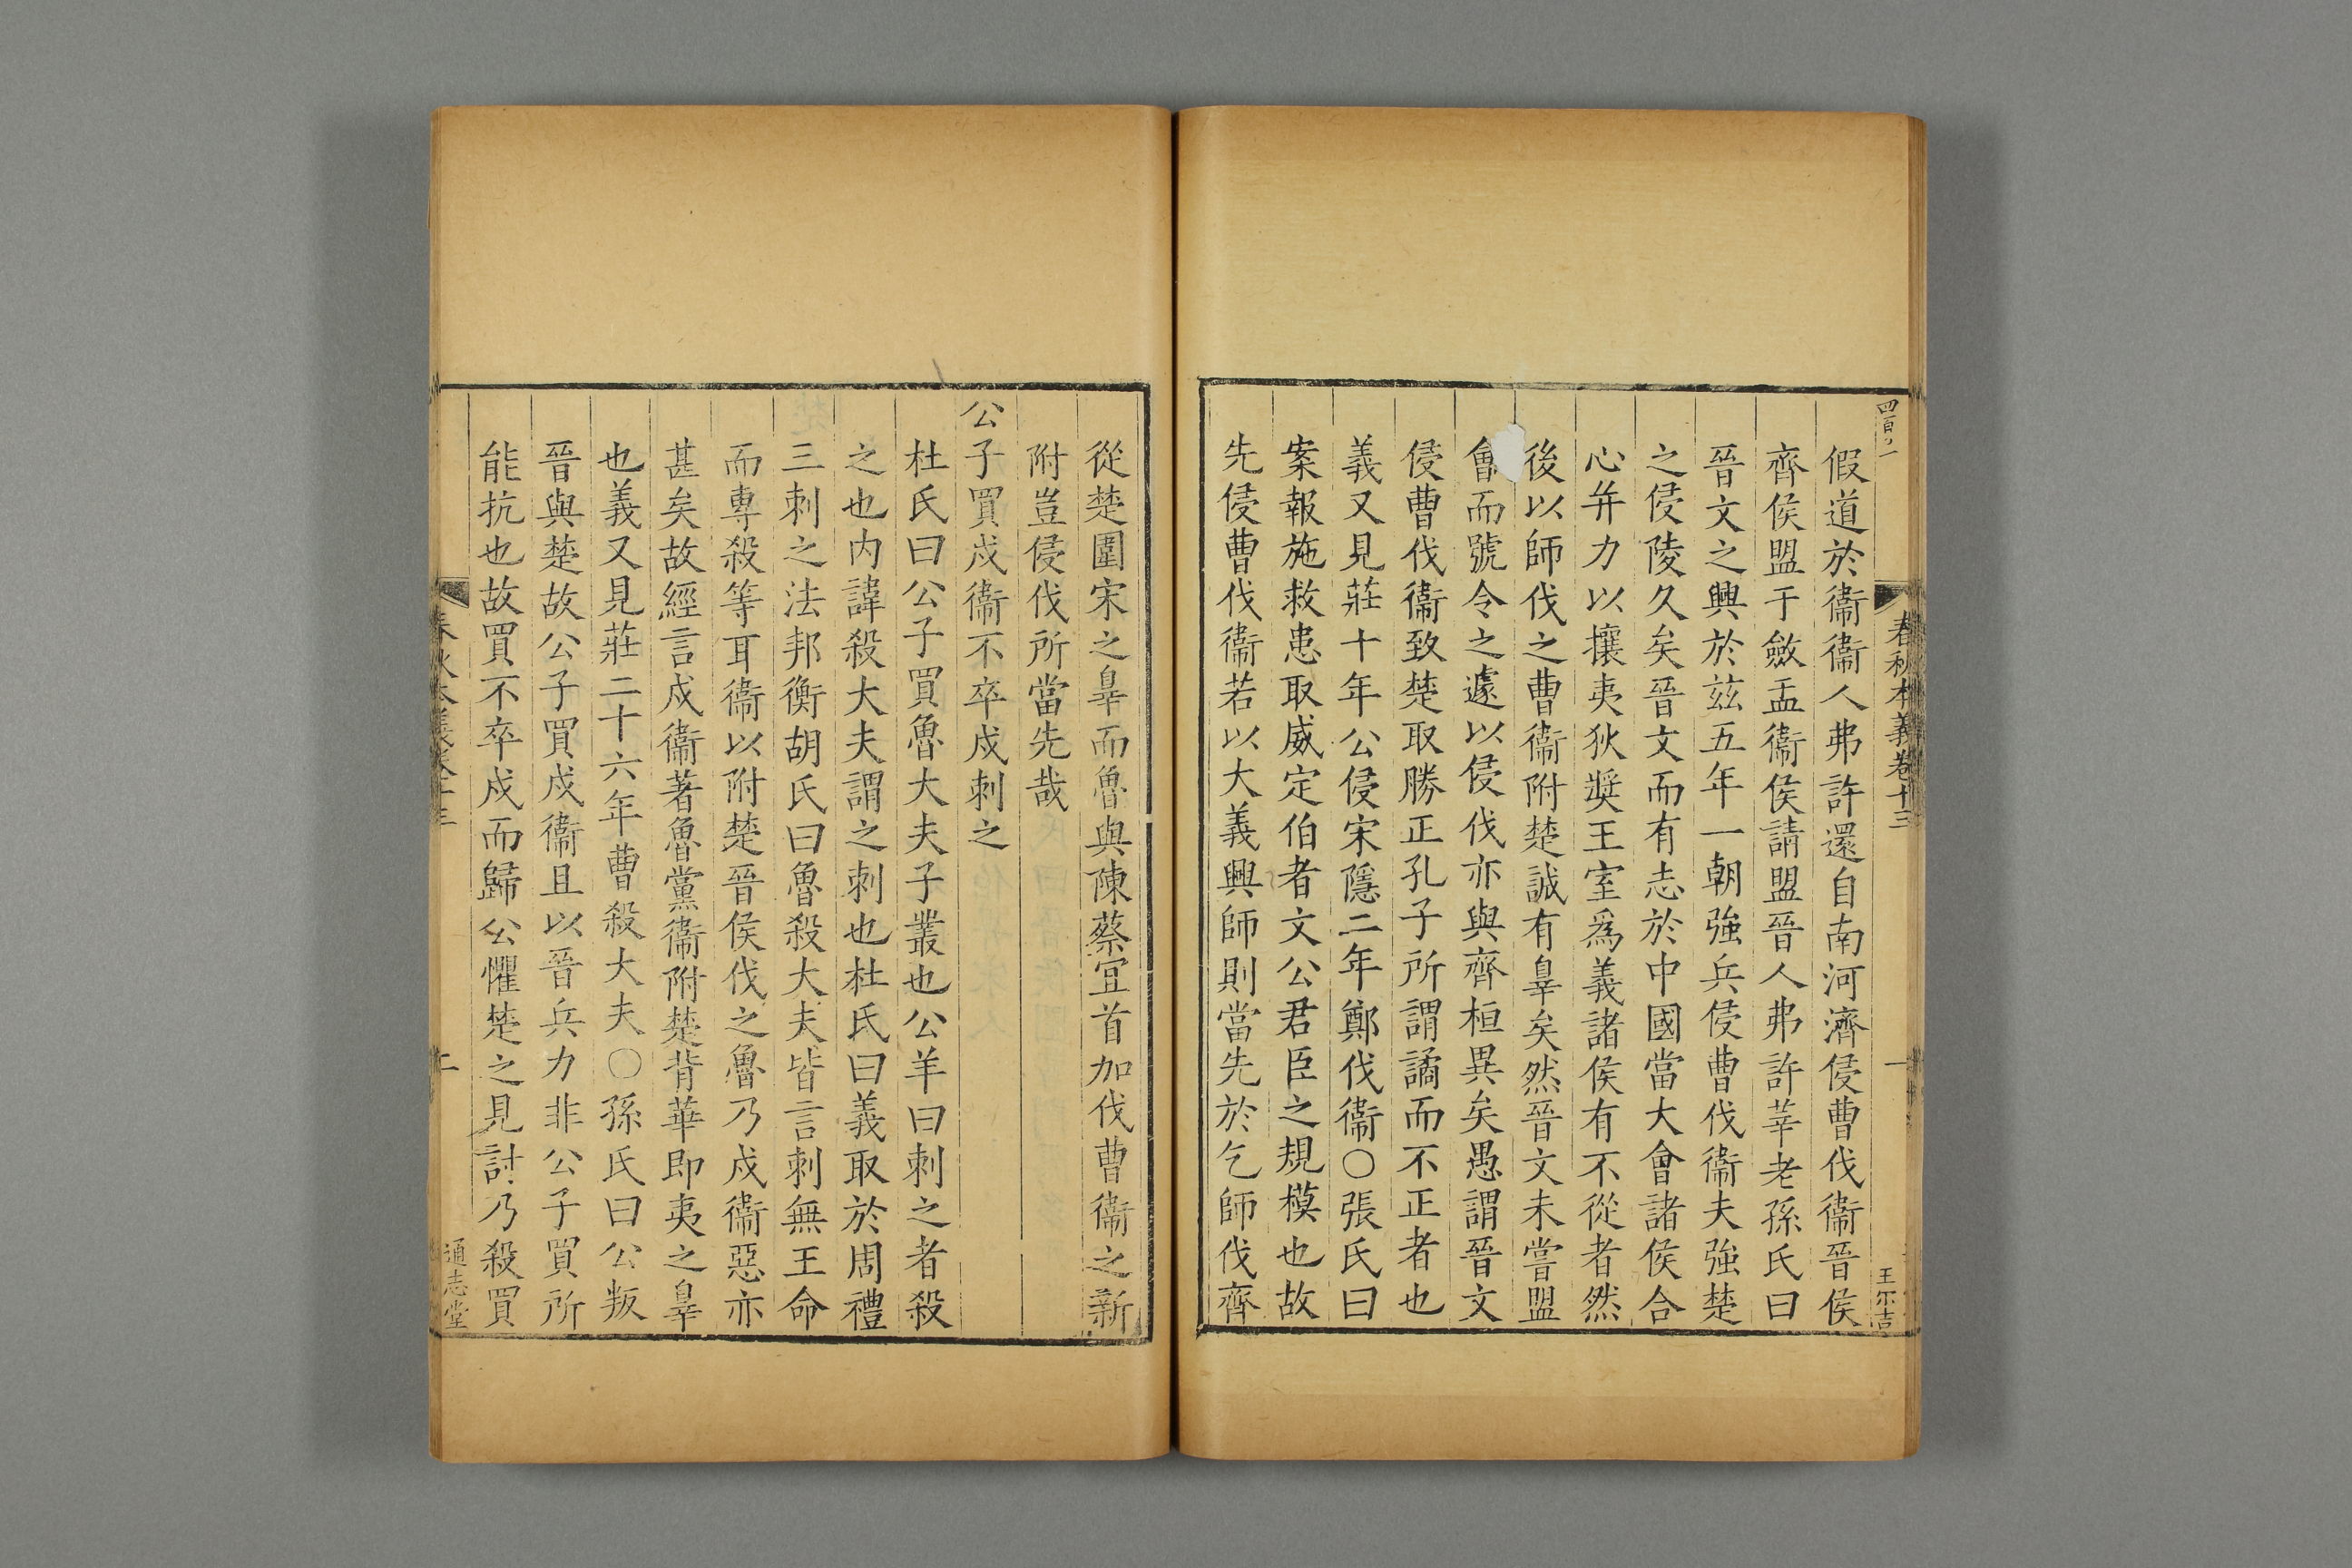 四百八一
春秋本義卷十三
一
王尔吉
假道於衞衞人弗許還自南河濟侵曹伐衞晉侯
齊侯盟于斂盂衞侯請盟晉人弗許莘老孫氏曰
晉文之興於茲五年一朝強兵侵曹伐衞夫強楚
之侵陵久矣晉文而有志於中國當大會諸侯合
心幷力以攘夷狄奬王室爲義諸侯有不從者然
後以師伐之曹衞附楚誠有辠矣然晉文未嘗盟
會而號令之遽以侵伐亦與齊桓異矣愚謂晉文
侵曹伐衞致楚取勝正孔子所謂譎而不正者也
義又見莊十年公侵宋隱二年鄭伐衞○張氏曰
案報施救患取威定伯者文公君臣之規模也故
先侵曹伐衞若以大義興師則當先於乞師伐齊
從楚圍宋之辠而魯與陳蔡宜首加伐曹衞之新
附豈侵伐所當先哉
公子買戍衞不卒戍刺之
杜氏曰公子買魯大夫子叢也公羊曰刺之者殺
之也内諱殺大夫謂之刺也杜氏曰義取於周禮
三刺之法邦衡胡氏曰魯殺大夫皆言刺無王命
而專殺等耳衞以附楚晉侯伐之魯乃戍衞惡亦
甚矣故經言戍衞著魯黨衞附楚背華即夷之辠
也義又見莊二十六年曹殺大夫○孫氏曰公叛
晉與楚故公子買戍衞且以晉兵力非公子買所
能抗也故買不卒戍而歸公懼楚之見討乃殺買
春秋本義卷十三
二
通志堂